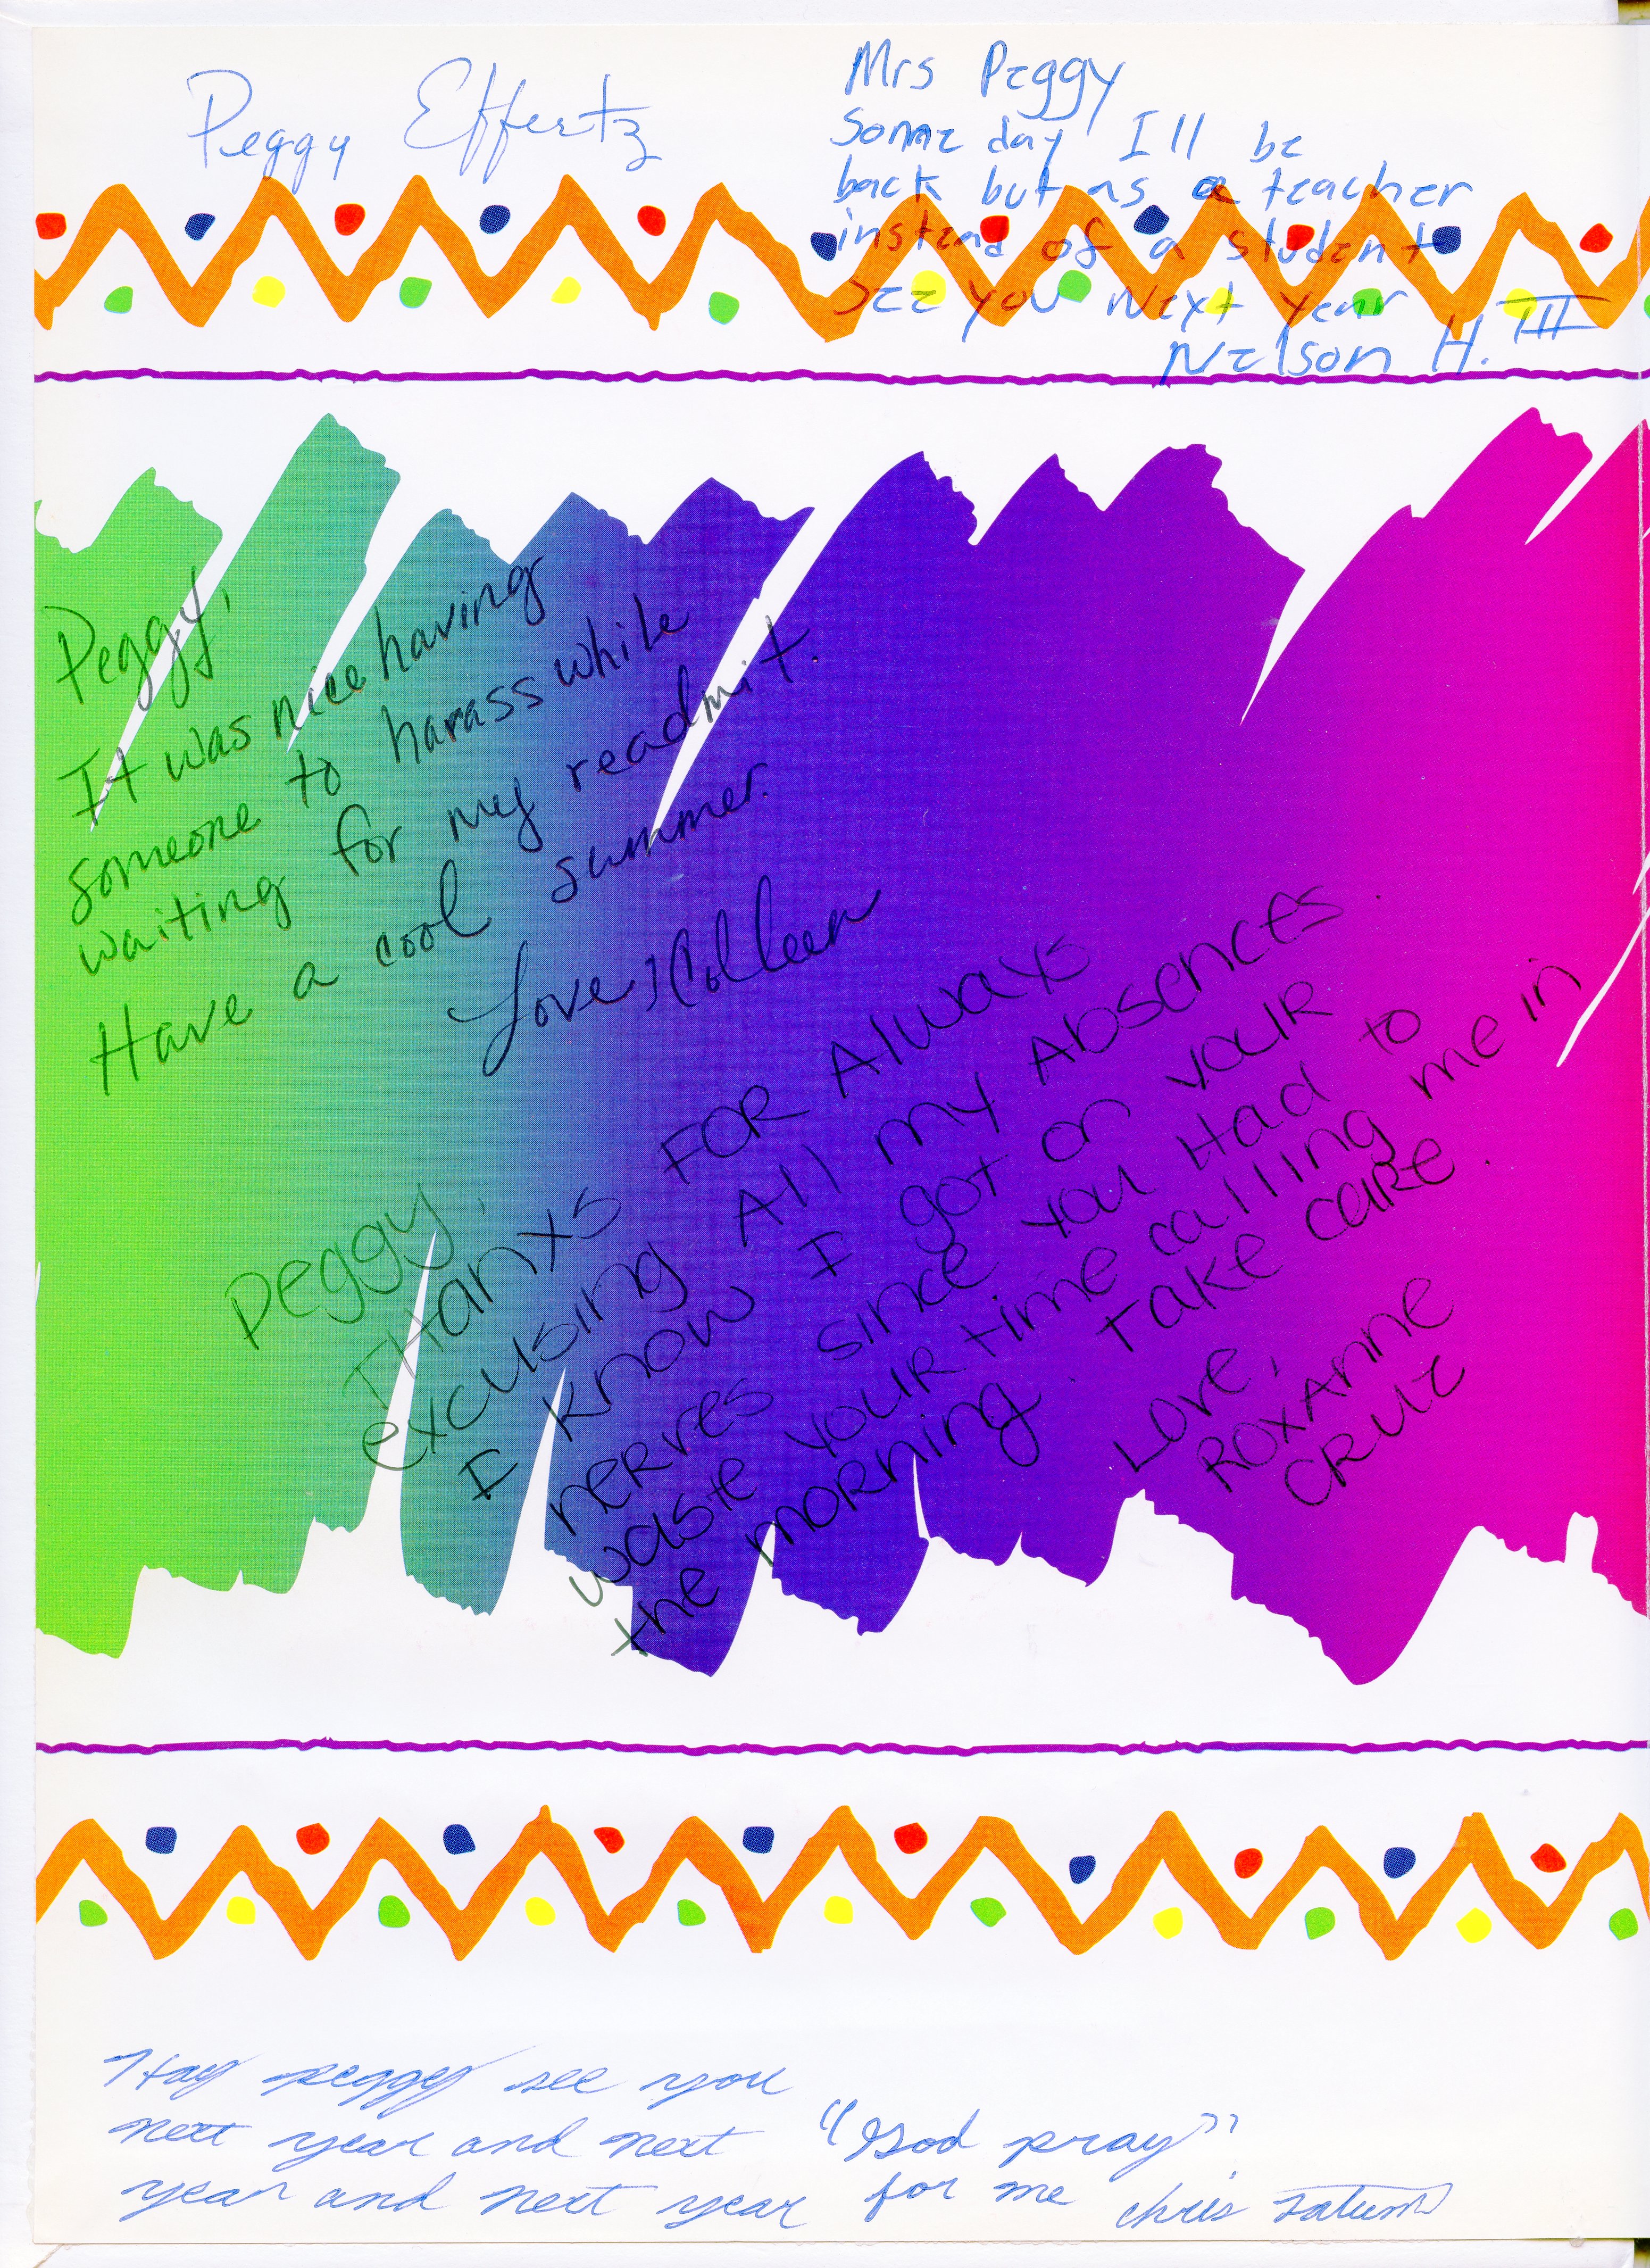 Peggy Effertz
Mrs Peggy
Some day I'll be
back but as a teacher
instead of a student
See you Next year
Nelson H. III
Peggy,
It was nice having
someone to harass while
waiting for my readmit.
Have a cool summer.
Love, Colleen
Peggy,
THanxs FOR Always
excusing All my Absences.
I know I got on your
nerves since you Had to
waste your time calling me in
the morning. Take care.
Love,
ROXANNE
CRUZ
Hay peggy see you
next year and next
year and next year
"God pray"
for me chris